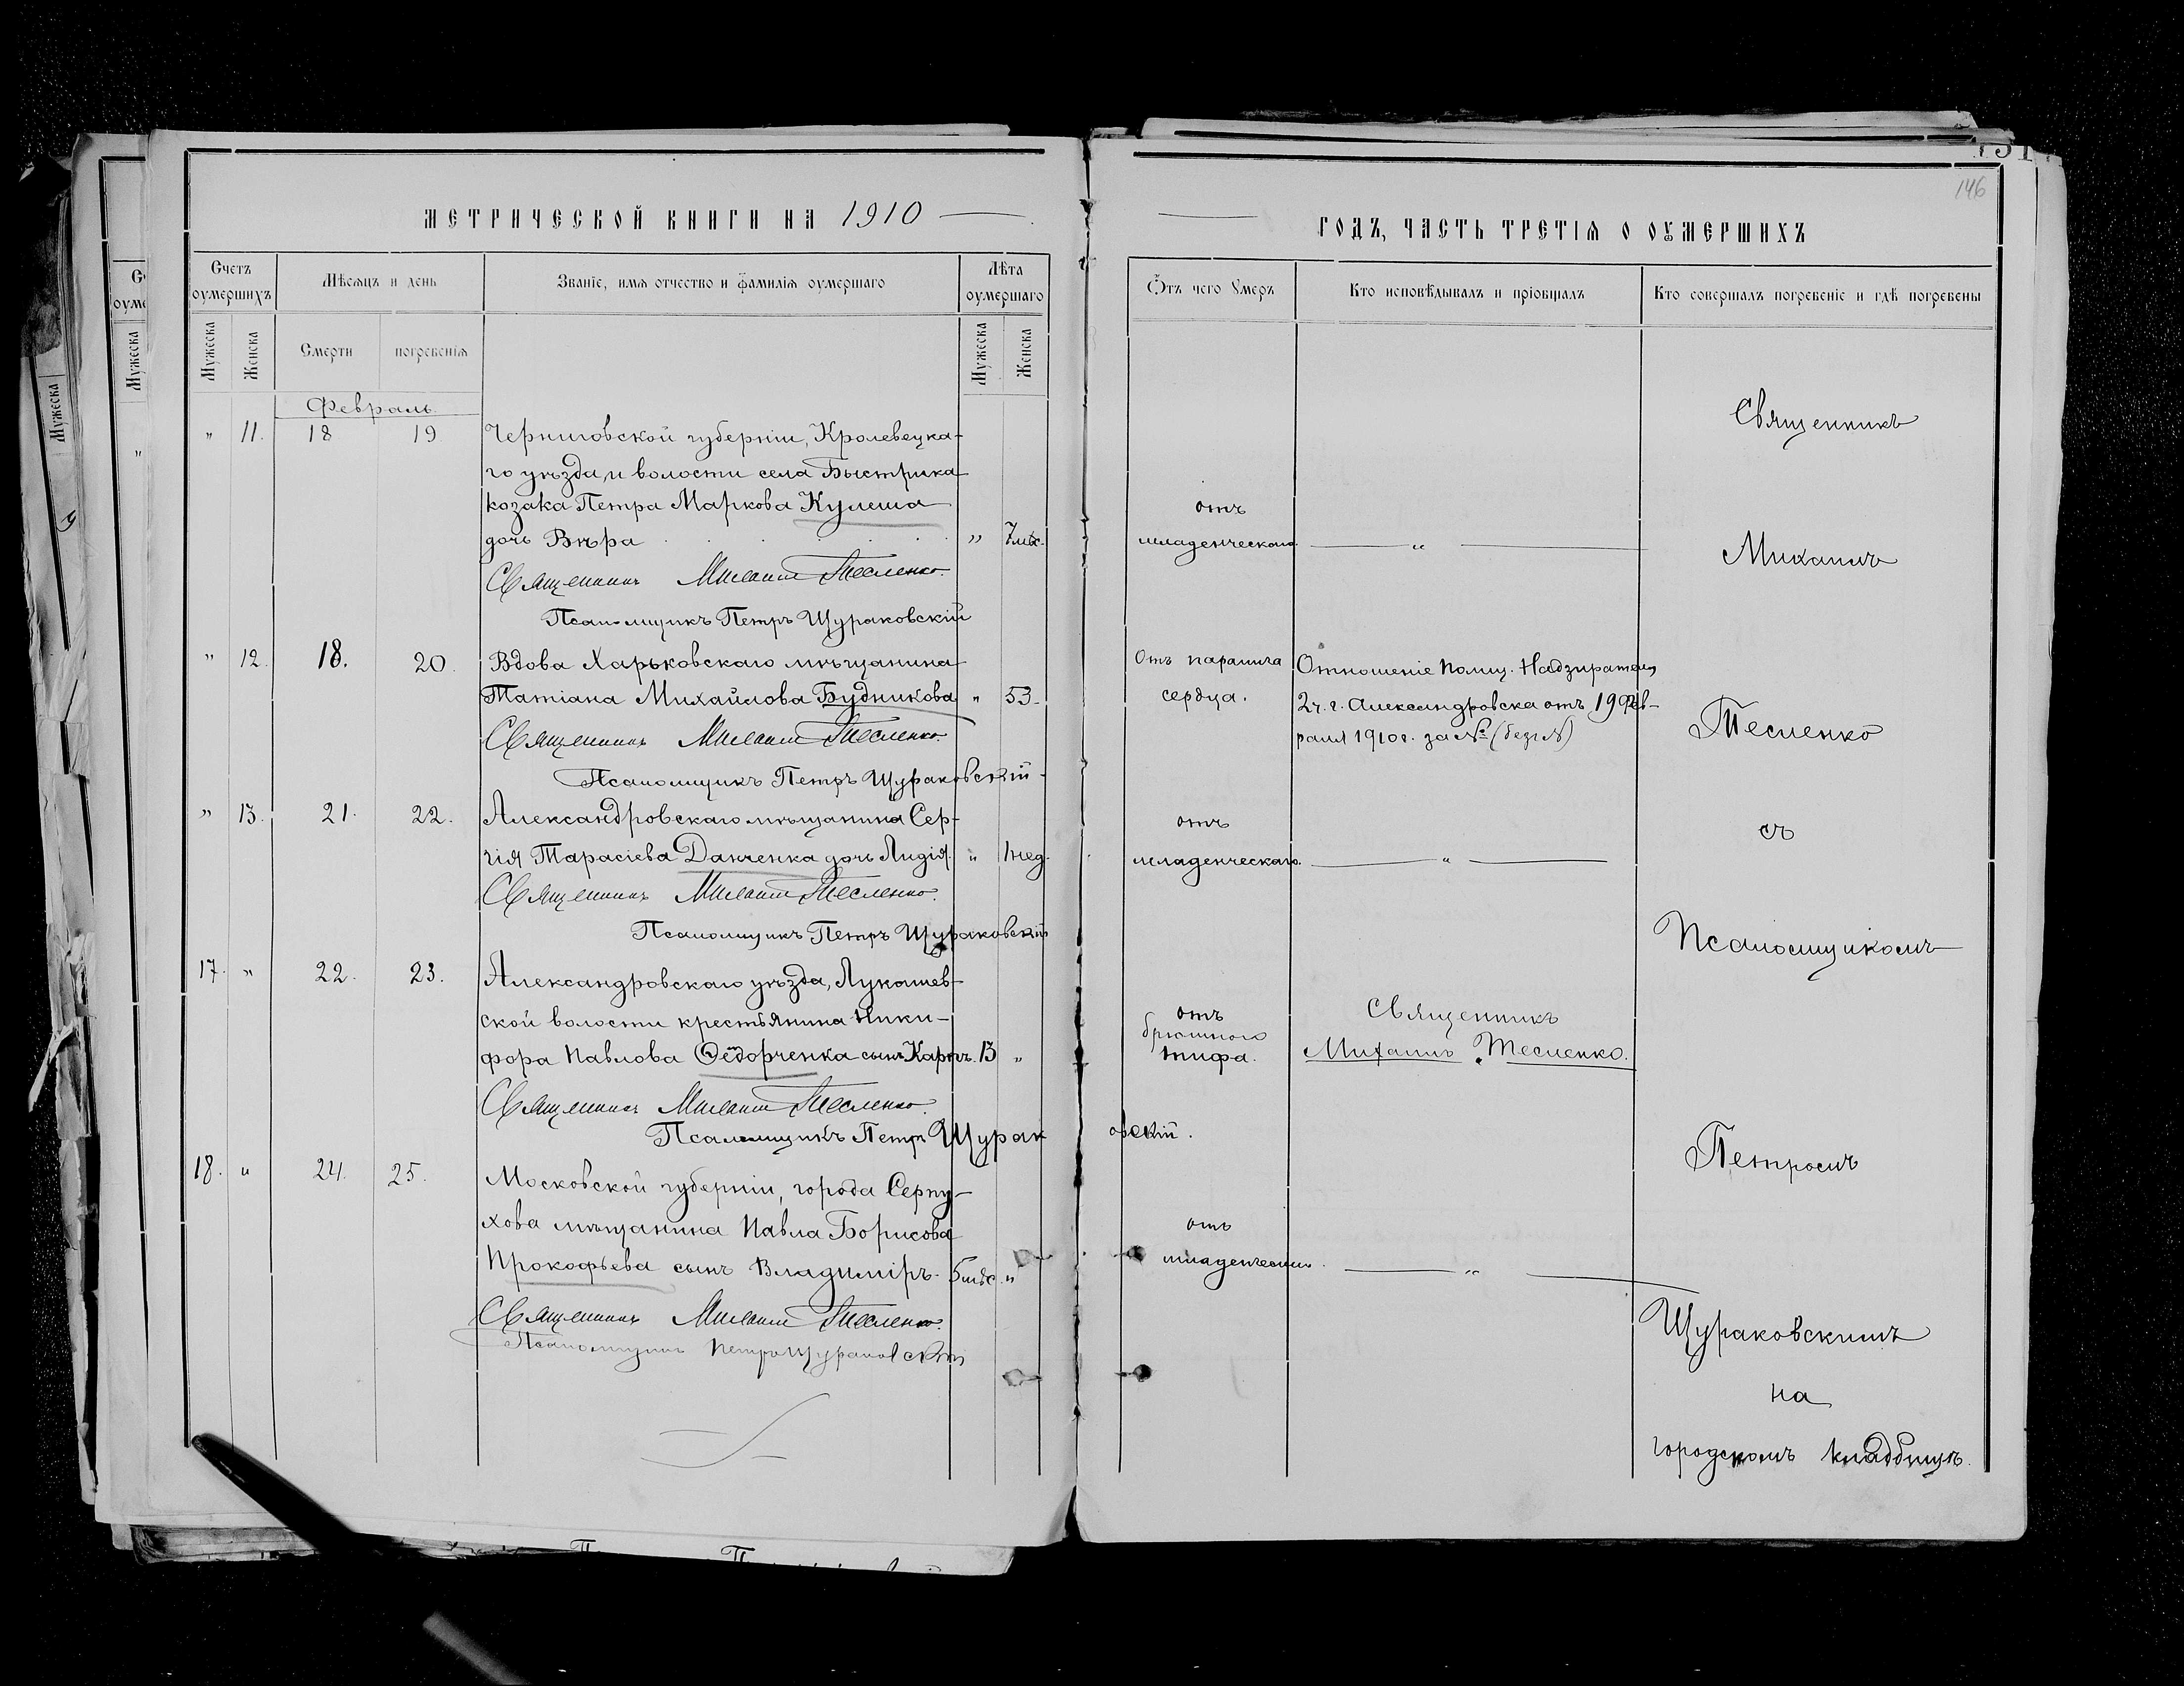 МЕТРИЧЕСКОЙ КНИГИ НА 1910
Счетъ оумершихъ
Мѣсяцъ и день
Званіе, имя отчество и фамилія оумершаго
Лѣта оумершаго
Мужеска
Женска
Смерти
погребенія
Мужеска
Женска
Февраль
" 11. 18 19 Черниговской губерніи, Кролевецка-
го уѣзда, и волости села Быстрика
козака Петра Маркова Кулеша
дочь Вѣра " 7 мѣс.
Священникъ Михаилъ Тесленко.
Псаломщикъ Петръ Щураковскій
" 12. 18. 20. Вдова Харьковскаго мѣщанина
Татіана Михайлова Будникова " 53.
Священникъ Михаилъ Тесленко.
Псаломщикъ Петръ Щураковскій
" 13. 21. 22. Александровскаго мѣщанина Сер-
гія Тарасіева Данченка дочь Лидія. " 1 нед.
Священникъ Михаилъ Тесленко.
Псаломщикъ Петръ Щураковскій
17. " 22. 23. Александровскаго уѣзда, Лукашев-
ской волости крестьянина Ники-
фора Павлова Ѳедорченка сынъ Карпъ. 13 "
Священникъ Михаилъ Тесленко.
Псаломщикъ Петръ Щураковскій.
18. " 24. 25. Московской губерніи, города Серпу-
хова мѣщанина Павла Борисова
Прокофьева сынъ Владиміръ. 5 мѣс. "
Священникъ Михаилъ Тесленко.
Псаломщикъ Петръ Щураковскій
146
ГОДЪ, ЧАСТЬ ТРЕТІЯ О ОУМЕРШИХЪ
Отъ чего Умеръ
Кто исповѣдывалъ и пріобщалъ
Кто совершалъ погребеніе и гдѣ погребены
отъ
младенческаго. "
Отъ паралича
сердца.
Отношеніе Помщ. Надзирателя
2 ч. г. Александровска отъ 19 Фев-
раля 1910 г. за № (безъ №)
отъ
младенческаго. "
отъ
брюшного
тифа.
Священникъ
Михаилъ Тесленко.
отъ
младенческаго. "
Священникъ
Михаилъ
Тесленко
съ
Псаломщикомъ
Петромъ
Щураковскимъ
на
городскомъ кладбищѣ.